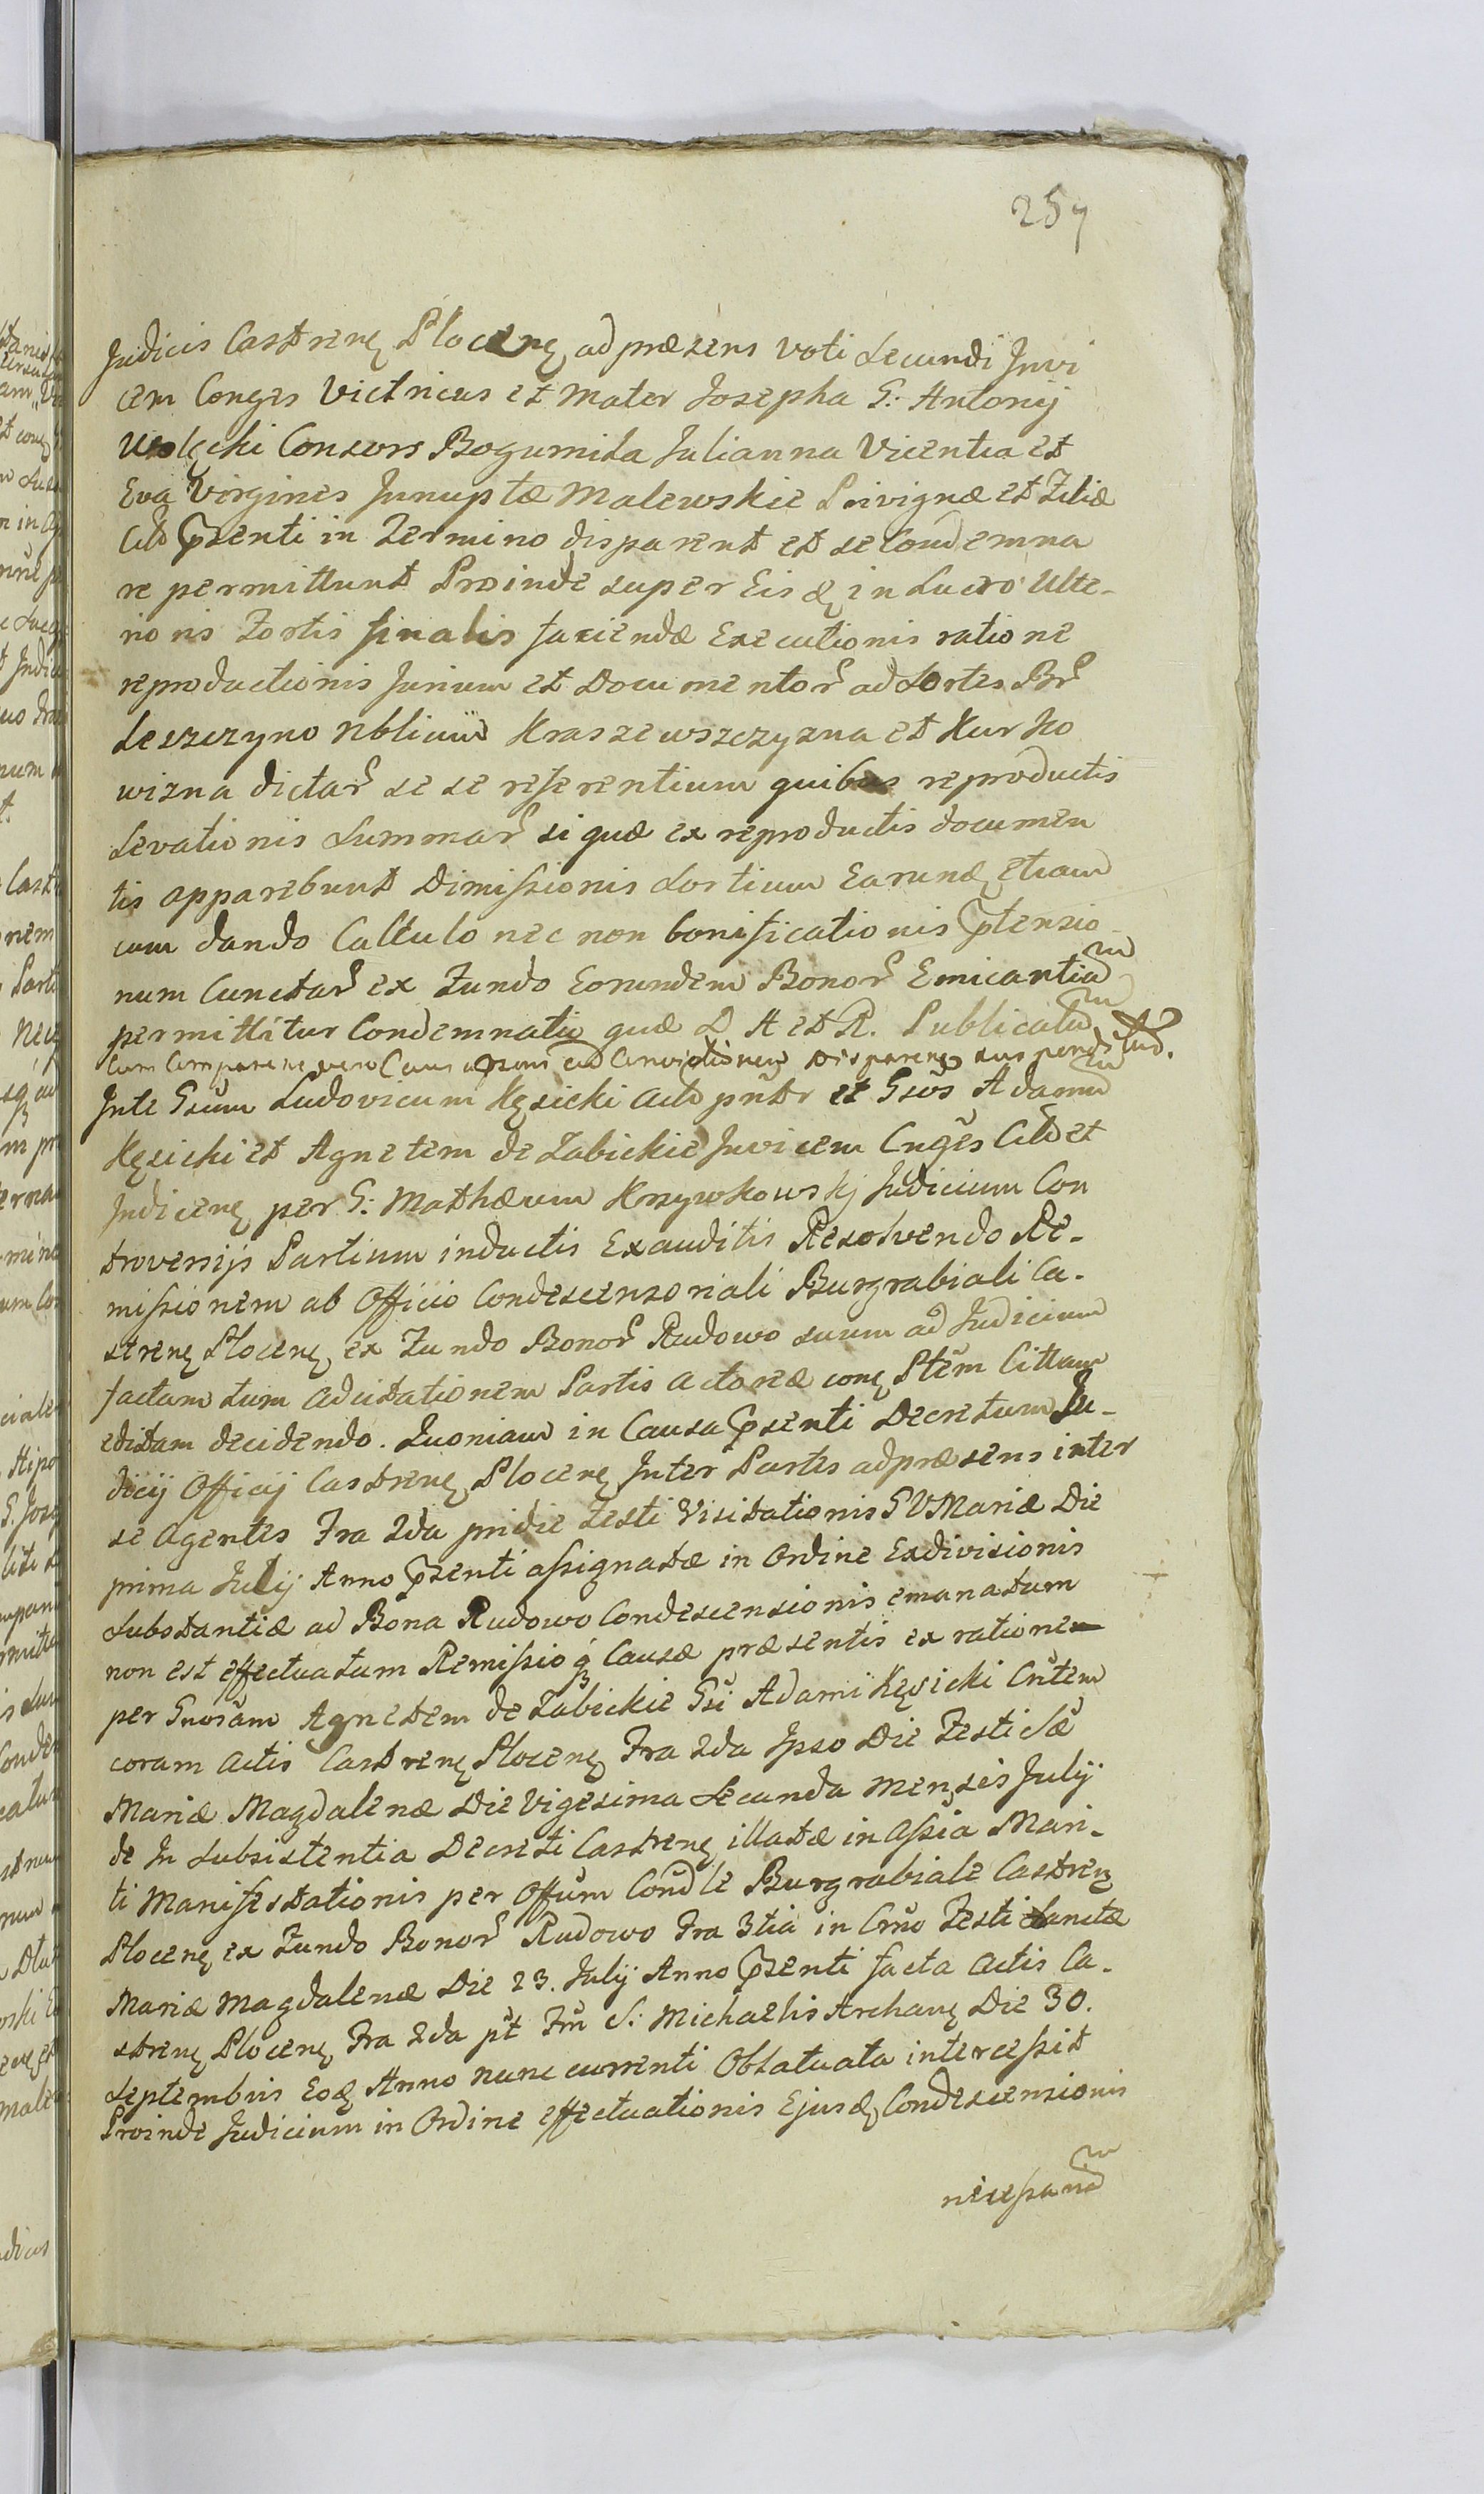 257
Judicis Castrenę Plocenę ad præsens voti Secundi Invi
cem Conges Victricus et Mater Josepha G: Antonij
Wolęcki Consors Bogumila Julianna Vicentia et
Eva Virgines Innuptæ Malewskie Privignæ et Filiæ
Citã præsenti in Termino disparent et se Condemna
re permittunt Proinde super Eis &, in Lucro Ulte-
rioris Fortis finalis faciendæ Executionis ratione
reproductionis Jurium et Documentor̃ ad Sortes Br̃
Leszczyno Nblium Kraszewszczyzna et Kurko
wizna dictar̃ se se referentium quibus reproductis
Levationis Summar̃ si quæ ex reproductis documen
tis apparebunt Dimissionis Sortium Earundę etiam
cum dando Calculo nec non bonificationis prætensio-
num Cunctar̃ ex Fundo Eorundem Bonor̃ Emicantiũ
permittitur Condemnatio quæ D A et R. Publicatũ
Cum Comparene vero Causa præsens ad Convictionem Disparenę suspenditur.
Inte Gsum Ludovicum Kęsicki Actõ pñtr et Gsõs Adamũ
Kęsicki et Agnetem de Zabickie Invicem Cngẽs Citõ et
Judicenę per G: Mathæum Krzywkowskj Judicium Con
troversijs Partium inductis Exauditis Resolvendo Re-
missionem ab Officio Condescensoriali Burgrabiali Ca-
strenę Plocenę ex Fundo Bonor̃ Rudowo suum ad Judicium
factam tum adcitationem Partis Actoreæ conę Ptẽm Cittam
editam decidendo. Quoniam in Causa præsenti Decretum Ju-
dicij Officij Castrenę Plocenę Inter Partes ad præsens inter
se agentes Fra 2da pridie Festi Visitationis S V Mariæ Die
prima Julij Anno præsenti assignatæ in Ordine Exdivisionis
Substantiæ ad Bona Rudowo Condescensionis emanatum
non est effectuatum Remissio q́ꝫ Causæ præsentis ex ratione
per Gnosãm Agnetem de Zabickie Gsi Adami Kęsicki Cnt̃em
coram Actis Castrenę Plocenę Fra 2da Ipso Die Festi Sæ̃
Mariæ Magdalenæ Die Vigesima Secunda Mensis Julij
de In Subsistentia Decreti Castrenę illatæ in Assia Mari-
ti Manifestationis per Offũm Cond̃le Burgrabiale Castrenę
Plocenę ex Fundo Bonor̃ Rudowo Fra 3tia in Crño Festi Sanctæ
Mariæ Magdalenæ Die 23. Julij Anno præsenti facta Actis Ca-
strenę Plocenę Fra 2da pt̃ Fm̃ S: Michaelis Archanę Die 30.
Septembris Eodę Anno nunc currenti Oblatuata intercessit
Proinde Judicium in Ordine effectuationis Ejusdę Condescensionis